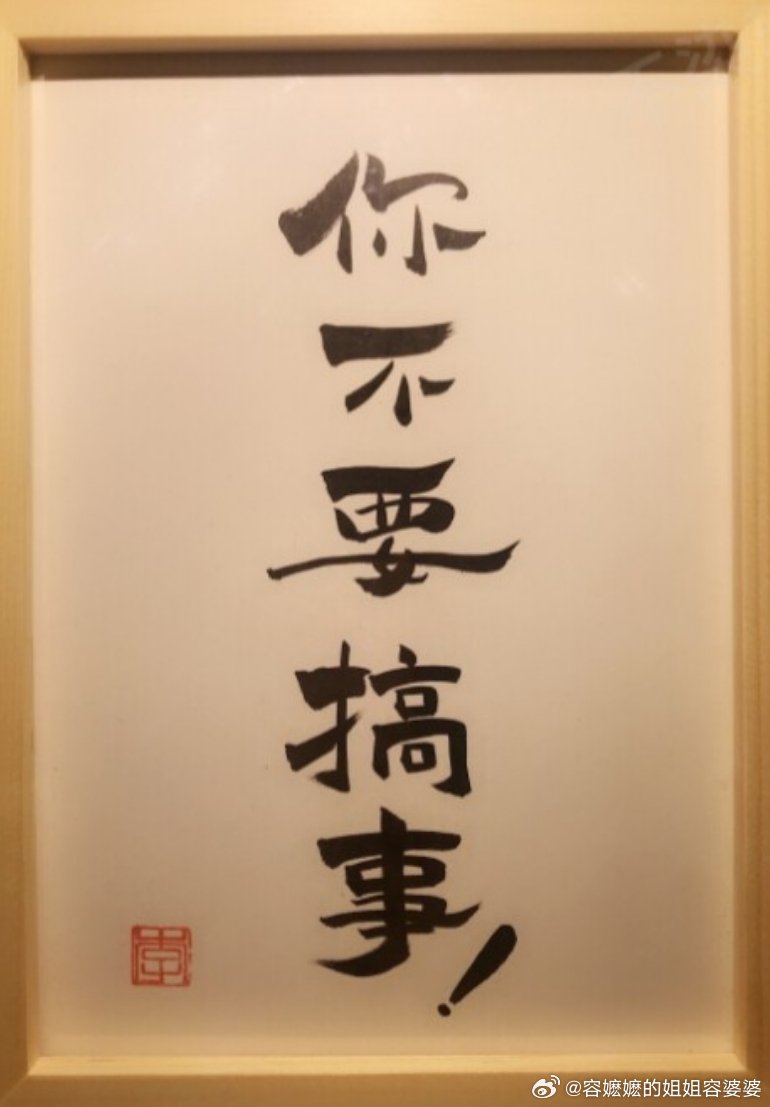 你不要搞事!
@容嬷嬷的姐姐容婆婆